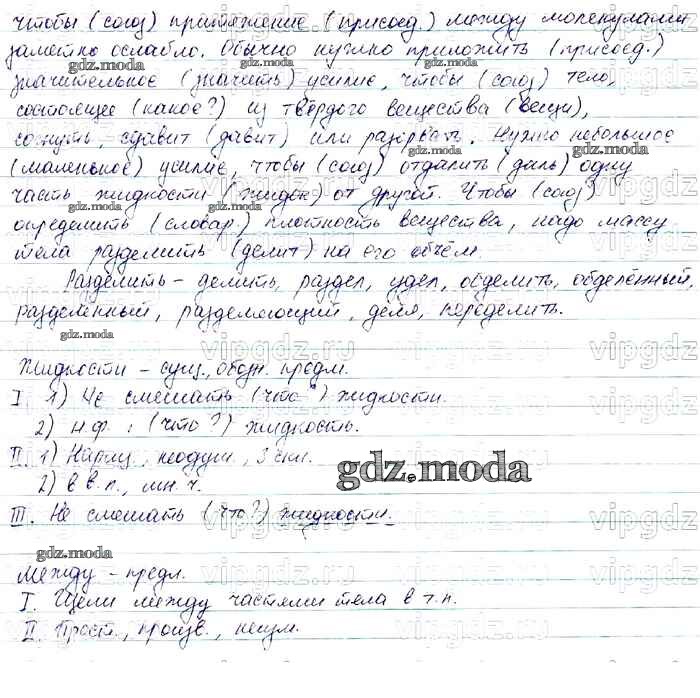 чтобы (союз) притяжение (присоед.) между молекулами
заметно ослабло. Обычно нужно приложить (присоед.)
значительное (значить) усилие, чтобы (союз) тело,
состоящее (какое?) из твёрдого вещества (вещи),
согнуть, сдавит (давит) или разорвать. Нужно небольшое
(маленькое) усилие, чтобы (союз) отдалить (даль) одну
часть жидкости (жидок) от другой. Чтобы (союз)
определить (словар) плотность вещества, надо массу
тела разделить (делит) на его объём.
Разделить – делить, раздел, удел, обделить, обделённый,
разделённый, разделяющий, деля, переделить.
Жидкости – сущ., обозн. предм.
I 1) Не смешать (что?) жидкости.
2) н.ф.: (что?) жидкость.
II. 1) Нариц., неодуш., 3 скл.
2) в В. п., мн. ч.
III. Не смешать (что?) жидкости.
Между – предл.
I. Щели между частями тела в т.п.
II. Прост., произв., неизм.
gdz.moda
vipgdz.ru